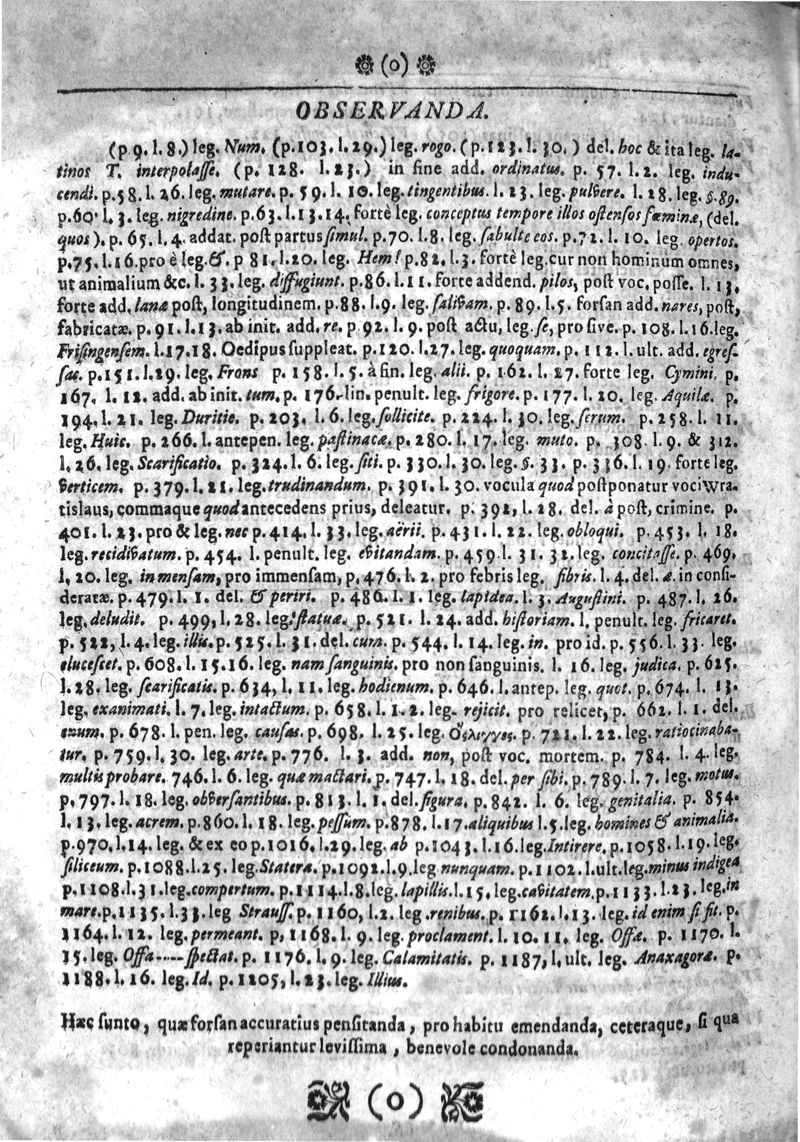 (o)
OBSERVANDA.
(p 9. l. 8.) leg. Num. (p. 103. l. 29.) leg. rogo. (p. 123. l. 30.) del. hoc & ita leg. la-
tinos T. interpolasse. (p. 128. l. 23.) in fine add. ordinatus. p. 57. l. 2. leg. indu-
cendi. p. 58. l. 26. leg. mutare. p. 59. l. 10. leg. tingentibus. l. 23. leg. pulvere. l. 28. leg. §. 89.
p. 60. l. 3. leg. nigredine. p. 63. l. 13. 14. fortè leg. conceptus tempore illos ostensos fœminæ, (del.
quos). p. 65. l. 4. addat. post partus simul. p. 70. l. 8. leg. fabulte eos. p. 72. l. 10. leg. opertos.
p. 75. l. 16. pro è leg. &. p 81. l. 20. leg. Hem! p. 82. l. 3. fortè leg. cur non hominum omnes,
ut animalium &c. l. 33. leg. diffugiunt. p. 86. l. 11. forte addend. pilos, post voc. posse. l. 13.
forte add. lanæ post, longitudinem. p. 88. l. 9. leg. salivam. p. 89. l. 5. forsan add. nares, post,
fabricatæ. p. 91. l. 13. ab init. add. re. p 92. l. 9. post actu, leg. se, pro sive. p. 108. l. 16. leg.
Frisingensem. l. 17. 18. Oedipus suppleat. p. 120. l. 27. leg. quoquam. p. 112. l. ult. add. egres-
sæ. p. 151. l. 29. leg. Frons p. 158. l. 5. à fin. leg. alii. p. 162. l. 27. forte leg. Cymini. p.
167. l. 12. add. ab init. tum. p. 176. lin. penult. leg. frigore. p. 177. l. 20. leg. Aquilæ p.
194. l. 21. leg. Duritie. p. 203. l. 6. leg. sollicite. p. 224. l. 30. leg. serum. p. 258. l. 11.
leg. Huic. p. 266. l. antepen. leg. pastinacæ. p. 280. l. 17. leg. muto. p. 308. l. 9. & 312.
l. 26. leg. Scarificatio. p. 324. l. 6. leg. siti. p. 330. l. 30. leg. §. 33. p. 336. l. 19. forte leg.
verticem. p. 379. l. 21. leg. trudinandum. p. 391. l. 30. vocula quod postponatur voci Wra-
tislaus, commaque quod antecedens prius, deleatur. p. 392, l. 28. del. à post, crimine. p.
401. l. 23. pro & leg. nec p. 414. l. 33. leg. aërii. p. 431. l. 22. leg. obloqui. p. 453. l. 18.
leg. recidivatum. p. 454. l. penult. leg. evitandam. p. 459. l. 31. 32. leg. concitasse. p. 469.
l. 20. leg. in mensam, pro immensam, p. 476. l. 2. pro febris leg. fibris. l. 4. del. æ. in consi-
deratæ. p. 479. l. 1. del. & periri. p. 486. l. 1. leg. lapidea. l. 3. Augustini. p. 487. l. 26.
leg. deludit. p. 499, l. 28. leg. statuæ. p. 521. l. 24. add. historiam. l. penult. leg. fricaret.
p. 522, l. 4. leg. illis. p. 525. l. 31. del. cum. p. 544. l. 14. leg. in. pro id. p. 556. l. 33. leg.
elucescet. p. 608. l. 15. 16. leg. nam sanguinis. pro non sanguinis. l. 16. leg. judica. p. 625.
l. 28. leg. scarificatis. p. 634, l. 11. leg. hodienum. p. 646. l. antep. leg. quot. p. 674. l. 13.
leg. exanimati. l. 7. leg. intactum. p. 658. l. 1. 2. leg. rejicit. pro relicet, p. 662. l. 1. del.
enum. p. 678. l. pen. leg. causas. p. 698. l. 25. leg. p. 721. l. 22. leg. ratiocinaba-
tur. p. 759. l. 30. leg. arte. p. 776. l. 3. add. non, post voc. mortem. p. 784. l. 4. leg.
multis probare. 746. l. 6. leg. quæ mactari. p. 747. l. 18. del. per sibi. p. 789. l. 7. leg. motus.
p. 797. l. 18. leg. obversantibus. p. 813. l. 1. del. figura. p. 842. l. 6. leg. genitalia. p. 854.
l. 13. leg. acrem. p. 860. l. 18. leg. pessum. p. 878. l. 17. aliquibus l. 5. leg. homines & animalia.
p. 970. l. 14. leg. & ex eo p. 1016. l. 29. leg. ab p. 1043. l. 16. leg. Intirere. p. 1058. l. 19. leg.
siliceum. p. 1088. l. 25. leg. Statera. p. 1092. l. 9. leg nunquam. p. 1102. l. ult. leg. minus indigea
p. 1108. l. 31. leg. compertum. p. 1114. l. 8. leg. lapillis. l. 15. leg. cavitatem. p. 1133. l. 23. leg. in
mare. p. 1135. l. 33. leg Strauss. p. 1160, l. 2. leg. renibus. p. 1162. l. 13. leg. id enim si fit. p.
1164. l. 12. leg. permeant. p, 1168. l. 9. leg. proclament. l. 10. 11. leg. Offæ. p. 1170. l.
15. leg. Offa----spectat. p. 1176. l. 9. leg. Calamitatis. p. 1187, l. ult. leg. Anaxagoræ. p.
1188. l. 16. leg. Id. p. 1205, l. 23. leg. Illius.
Hæc sunto, quæ forsan accuratius pensitanda, pro habitu emendanda, ceteraque, si qua
reperiantur levissima, benevole condonanda.
(o)